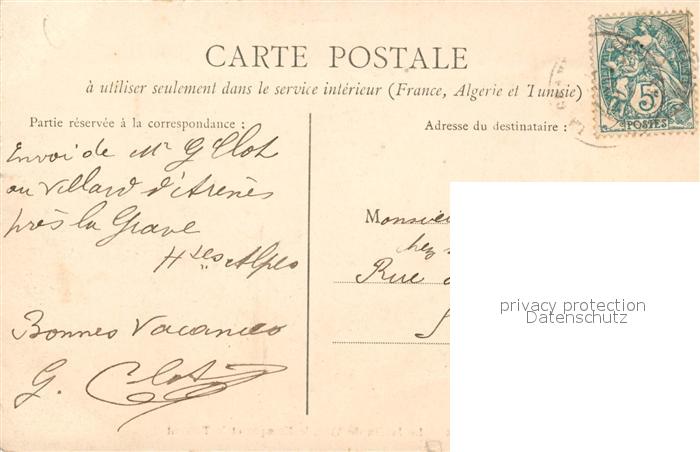 CARTE POSTALE
à utiliser seulement dans le service intérieur (France, Algerie et Tunisie)
Partie réservée à la correspondance :
Envoi de Mr G Clot
au Villard d'Arènes
près la Grave
Htes Alpes
Bonnes Vacances
G. Clot
Adresse du destinataire :
Monsieu
chez
Rue
5
POSTES
privacy protection
Datenschutz